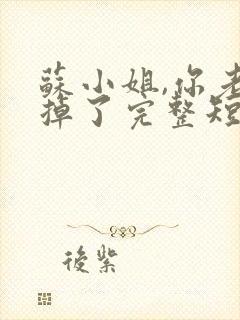 蘇小姐,你老
掉了完整短
後紫